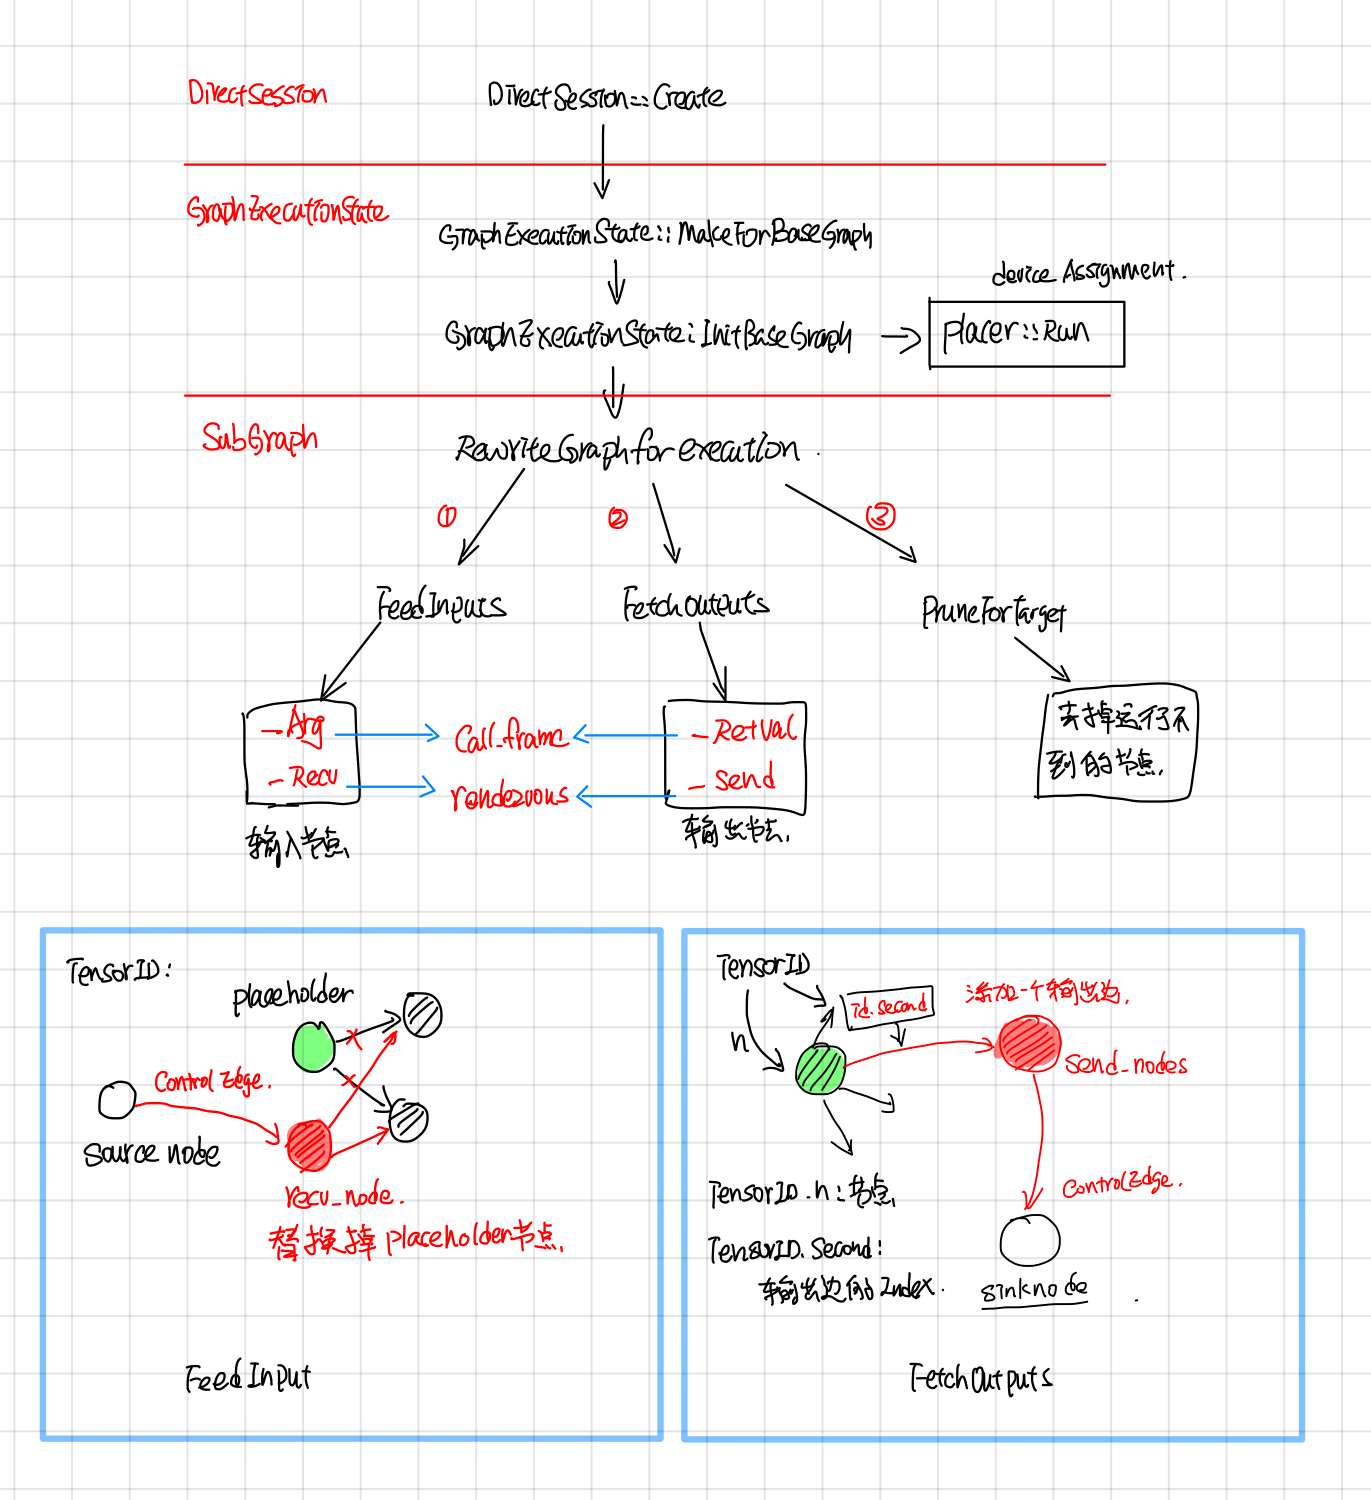 DirectSession
DirectSession::Create
GraphExecutionState
GraphExecutionState::MakeForBaseGraph
device Assignment.
GraphExecutionState:InitBaseGraph
placer::Run
SubGraph
RewriteGraphforexecution.
① ② ③
FeedInputs
FetchOutputs
PruneForTarget
_Arg
-Recv
Call_frame
rendezvous
_RetVal
_send
去掉运行不
到的节点.
输入节点.
输出节点.
TensorID:
placeholder
Control Edge.
source node
recv_node.
替换掉placeholder节点.
FeedInput
TensorID
id.second
添加一个输出边.
n
send_nodes
ControlEdge.
TensorID.n:节点
TensorID.Second:
输出边的Index.
sinknode
FetchOutputs